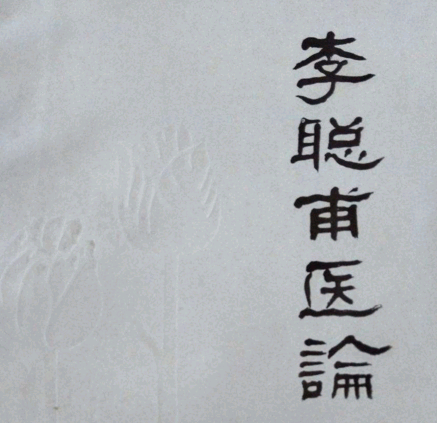 李聪甫医論